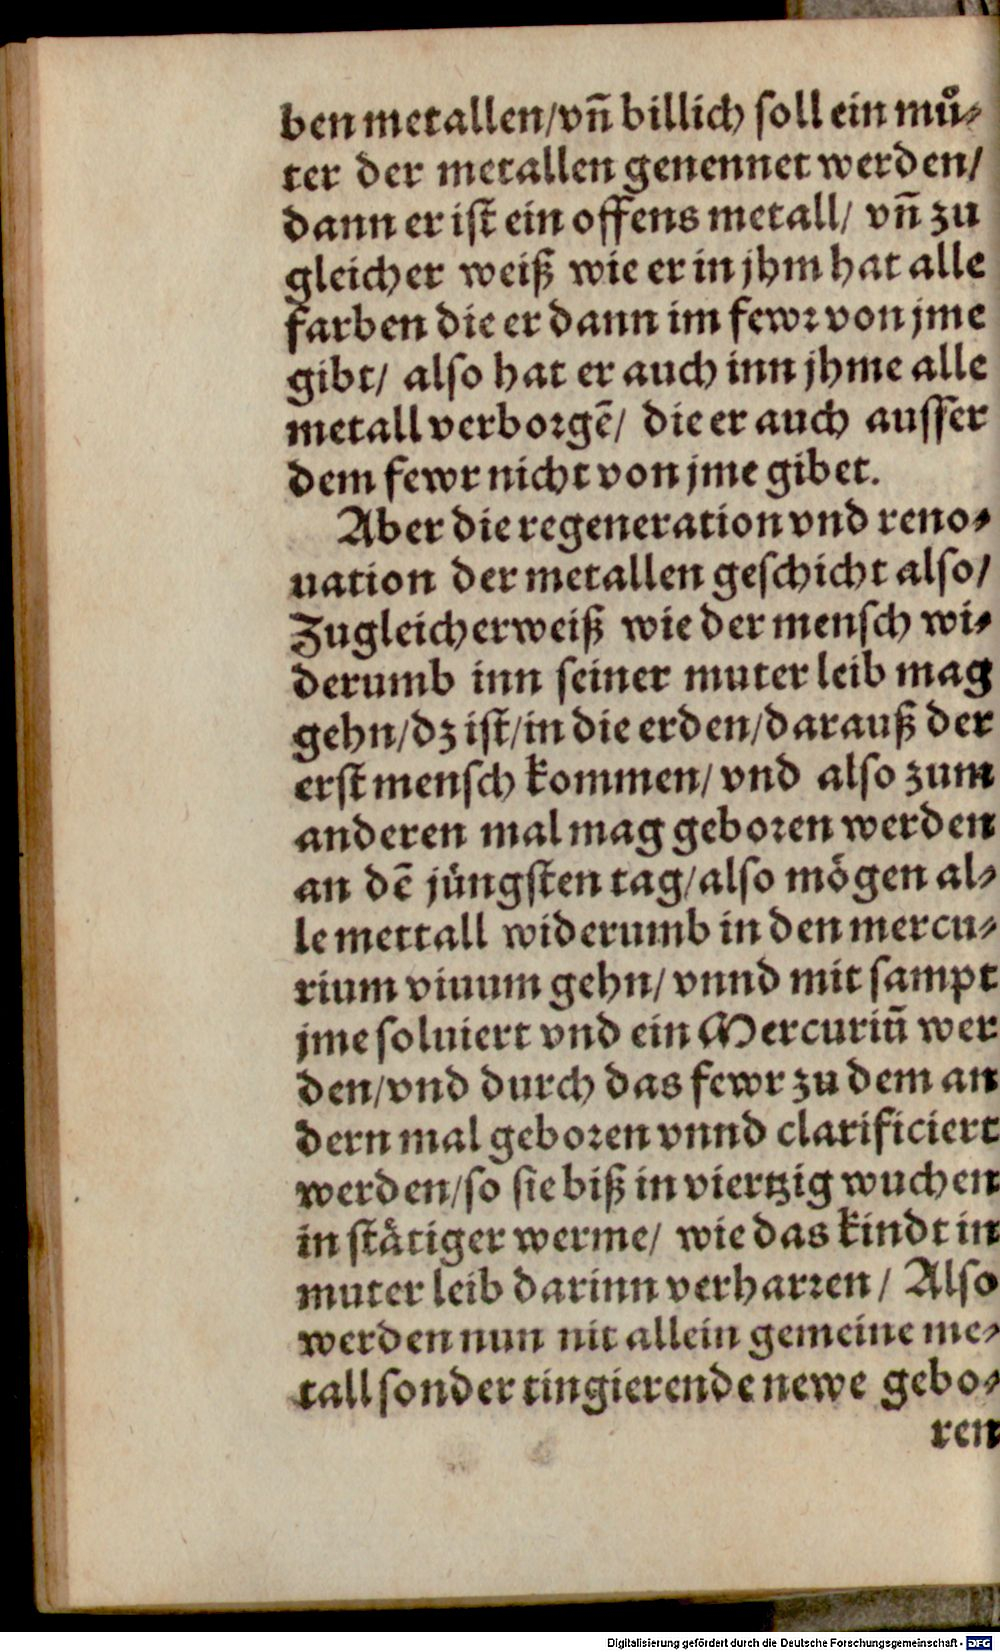 ben metallen/vñ billich soll ein mů⸗
ter der metallen genennet werden/
dann er ist ein offens metall/ vñ zu
gleicher weiß wie er in jhm hat alle
farben die er dann im fewr von jme
gibt/ also hat er auch inn jhme alle
metall verborgẽ/ die er auch ausser
dem fewr nicht von jme gibet.
Aber die regeneration vnd reno⸗
uation der metallen geschicht also/
Zugleicherweiß wie der mensch wi⸗
derumb inn seiner muter leib mag
gehn/dz ist/in die erden/darauß der
erst mensch kommen/ vnd also zum
anderen mal mag geboren werden
an dẽ jüngsten tag/also mögen al⸗
le mettall widerumb in den mercu⸗
rium viuum gehn/ vnnd mit sampt
jme soluiert vnd ein Mercuriũ wer
den/vnd durch das fewr zu dem an
dern mal geboren vnnd clarificiert
werden/so sie biß in viertzig wuchen
in stätiger werme/ wie das kindt in
muter leib darinn verharren/ Also
werden nun nit allein gemeine me⸗
tall sonder tingierende newe gebo⸗
ren
Digitalisierung gefördert durch die Deutsche Forschungsgemeinschaft - DFG